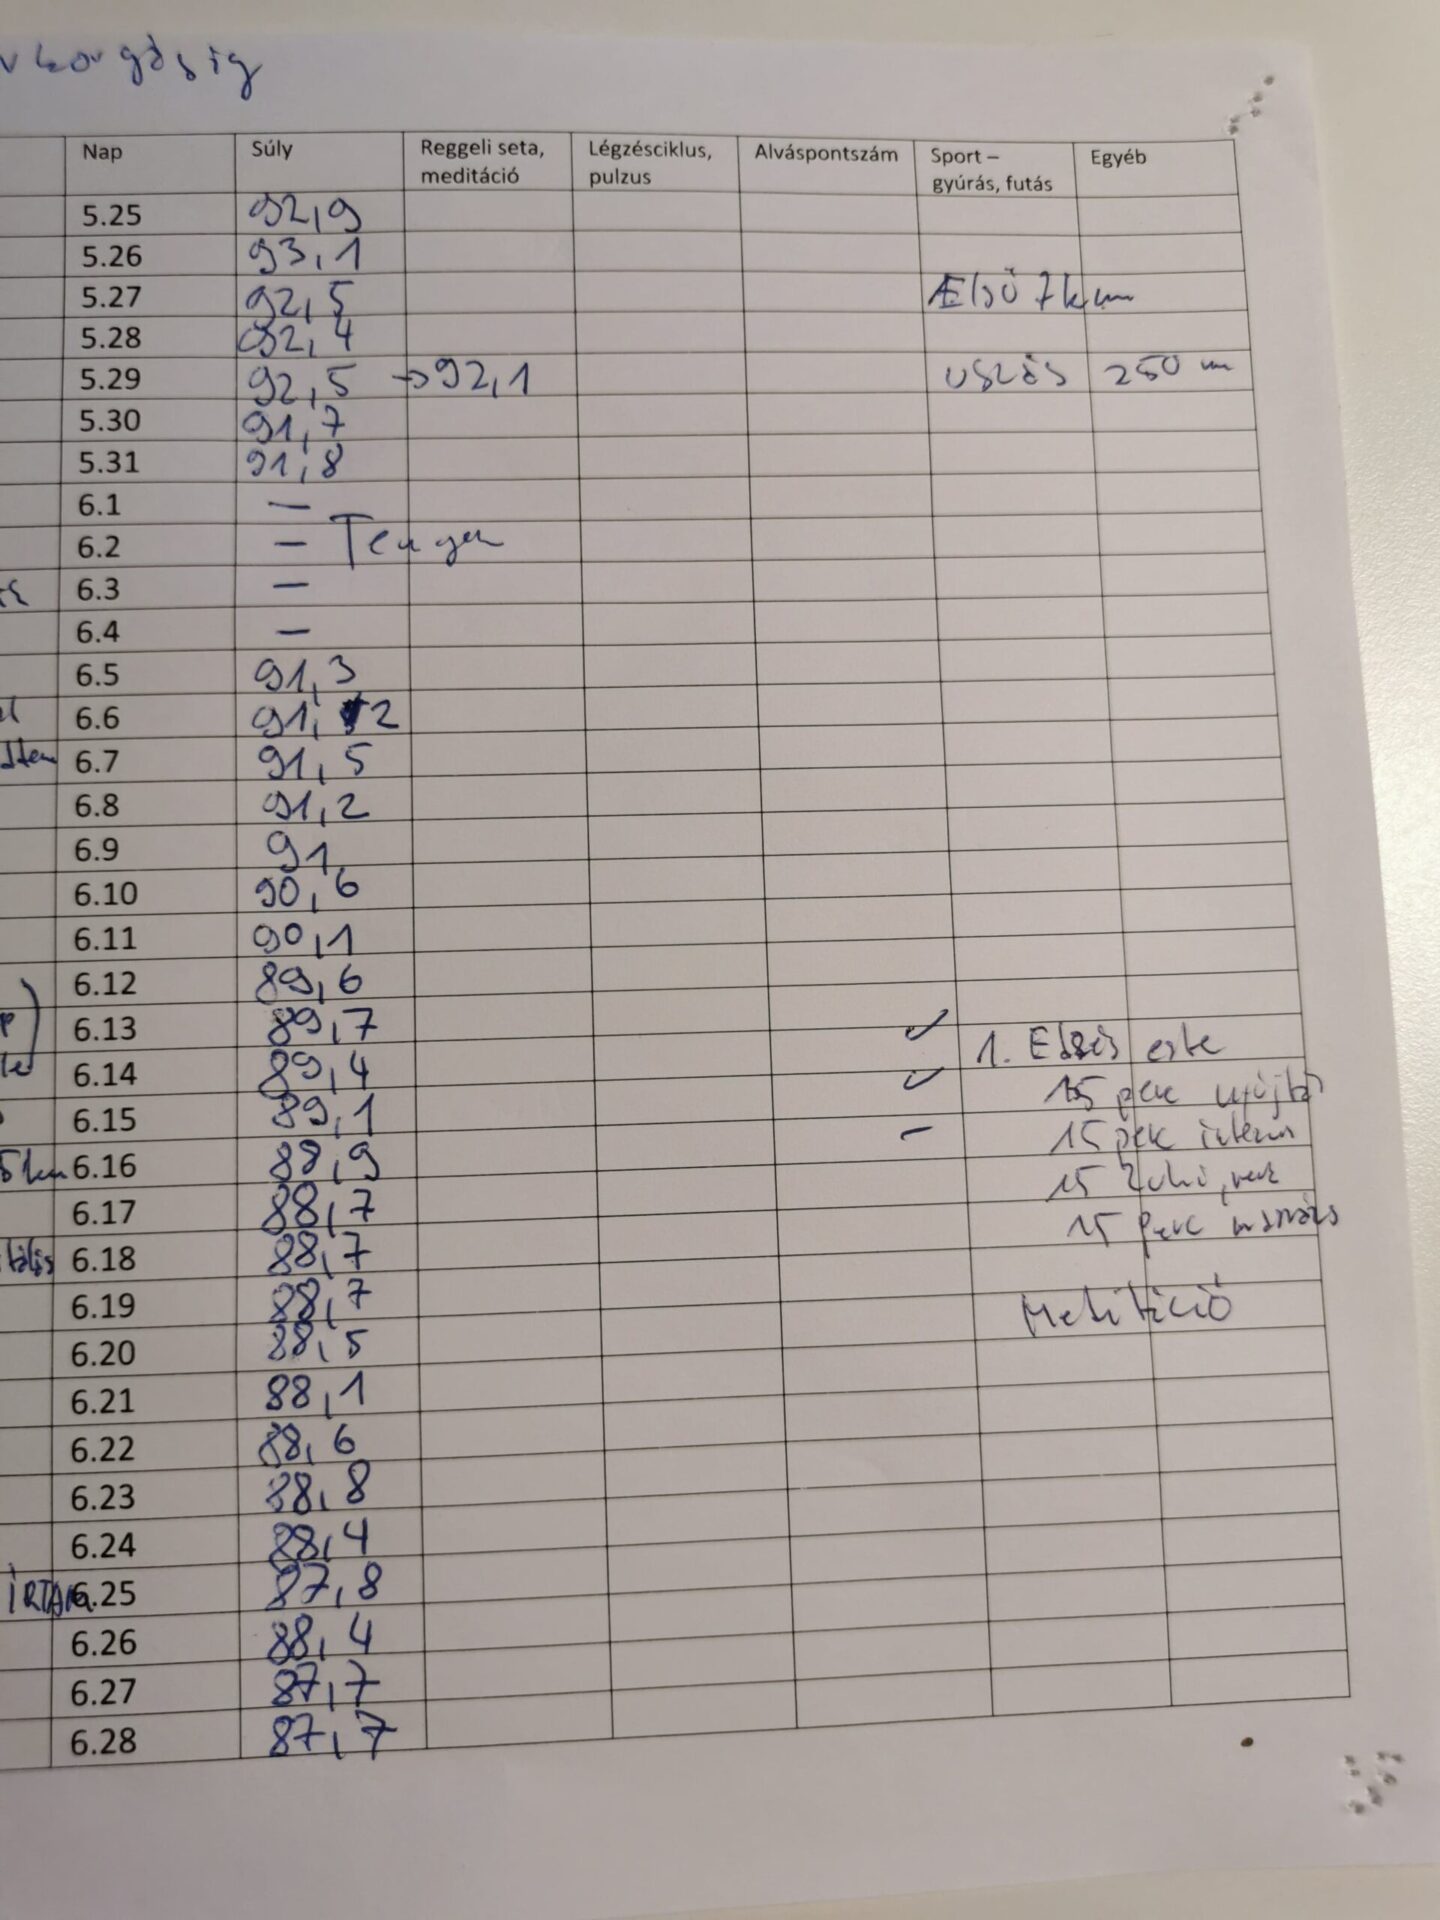 Nap Súly Reggeli seta, meditáció Légzésciklus, pulzus Alváspontszám Sport – gyúrás, futás Egyéb
5.25 92,9
5.26 93,1
5.27 92,5 Első 7km
5.28 92,4
5.29 92,5 →92,1 úszás 250 m
5.30 91,7
5.31 91,8
6.1 —
6.2 — Tenger
6.3 —
6.4 —
6.5 91,3
6.6 91,2
6.7 91,5
6.8 91,2
6.9 91,
6.10 90,6
6.11 90,1
6.12 89,6
6.13 89,7 ✓ 1. este
6.14 89,4 ✓ 15 perc nyújtó
6.15 89,1 – 15 perc
5 km 6.16 88,9 15
6.17 88,7 15 perc
6.18 88,7
6.19 88,7 Meditáció
6.20 88,5
6.21 88,1
6.22 88,6
6.23 88,8
6.24 88,4
ÍRTAM 6.25 87,8
6.26 88,4
6.27 87,7
6.28 87,7